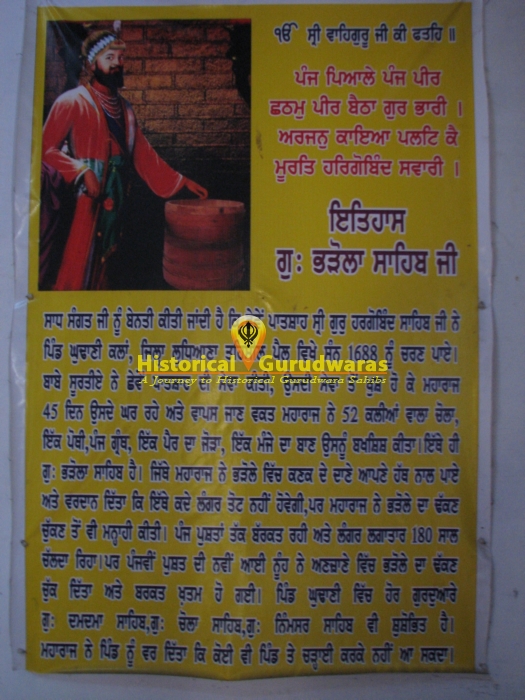 ੴ ਸ੍ਰੀ ਵਾਹਿਗੁਰੂ ਜੀ ਕੀ ਫਤਹਿ ॥
ਪੰਜ ਪਿਆਲੇ ਪੰਜ ਪੀਰ
ਛਠਮੁ ਪੀਰ ਬੈਠਾ ਗੁਰ ਭਾਰੀ ।
ਅਰਜਨੁ ਕਾਇਆ ਪਲਟਿ ਕੈ
ਮੂਰਤਿ ਹਰਿਗੋਬਿੰਦ ਸਵਾਰੀ ।
ਇਤਿਹਾਸ
ਗੁ: ਭੜੋਲਾ ਸਾਹਿਬ ਜੀ
ਸਾਧ ਸੰਗਤ ਜੀ ਨੂੰ ਬੇਨਤੀ ਕੀਤੀ ਜਾਂਦੀ ਹੈ ਕਿ ਪਾਤਸ਼ਾਹ ਸ੍ਰੀ ਗੁਰੂ ਹਰਗੋਬਿੰਦ ਸਾਹਿਬ ਜੀ ਨੇ
ਪਿੰਡ ਘੁਢਾਣੀ ਕਲਾਂ, ਜ਼ਿਲਾ ਲੁਧਿਆਣਾ ਪੈਲ ਵਿਖੇ ਸੰਨ 1688 ਨੂੰ ਚਰਣ ਪਾਏ।
Historical Gurudwaras
A Journey to Historical Gurudwara Sahibs
ਬਾਬੇ ਸੂਰਤੀਏ ਨੇ ਹੋ ਕੇ ਮਹਾਰਾਜ
45 ਦਿਨ ਉਸਦੇ ਘਰ ਰਹੇ ਅਤੇ ਵਾਪਸ ਜਾਣ ਵਕਤ ਮਹਾਰਾਜ ਨੇ 52 ਕਲੀਆਂ ਵਾਲਾ ਚੋਲਾ,
ਇੱਕ ਪੋਥੀ,ਪੰਜ ਗ੍ਰੰਥ, ਇੱਕ ਪੈਰ ਦਾ ਜੋੜਾ, ਇੱਕ ਮੰਜੇ ਦਾ ਬਾਣ ਉਸਨੂੰ ਬਖਸ਼ਿਸ਼ ਕੀਤਾ।ਇੱਥੇ ਹੀ
ਗੁ: ਭੜੋਲਾ ਸਾਹਿਬ ਹੈ। ਜਿੱਥੇ ਮਹਾਰਾਜ ਨੇ ਭੜੋਲੇ ਵਿੱਚ ਕਣਕ ਦੇ ਦਾਣੇ ਆਪਣੇ ਹੱਥ ਨਾਲ ਪਾਏ
ਅਤੇ ਵਰਦਾਨ ਦਿੱਤਾ ਕਿ ਇੱਥੇ ਕਦੇ ਲੰਗਰ ਤੋਟ ਨਹੀਂ ਹੋਵੇਗੀ,ਪਰ ਮਹਾਰਾਜ ਨੇ ਭੜੋਲੇ ਦਾ ਢੱਕਣ
ਚੁੱਕਣ ਤੋਂ ਵੀ ਮਨ੍ਹਾਹੀ ਕੀਤੀ। ਪੰਜ ਪੁਸ਼ਤਾਂ ਤੱਕ ਬੱਰਕਤ ਰਹੀ ਅਤੇ ਲੰਗਰ ਲਗਾਤਾਰ 180 ਸਾਲ
ਚੱਲਦਾ ਰਿਹਾ।ਪਰ ਪੰਜਵੀਂ ਪੁਸ਼ਤ ਦੀ ਨਵੀਂ ਆਈ ਨੂੰਹ ਨੇ ਅਣਜਾਣੇ ਵਿੱਚ ਭੜੋਲੇ ਦਾ ਢੱਕਣ
ਚੁੱਕ ਦਿੱਤਾ ਅਤੇ ਬਰਕਤ ਖੁਤਮ ਹੋ ਗਈ। ਪਿੰਡ ਘੁਢਾਣੀ ਵਿੱਚ ਹੋਰ ਗੁਰਦੁਆਰੇ
ਗੁ: ਦਮਦਮਾ ਸਾਹਿਬ,ਗੁ: ਚੋਲਾ ਸਾਹਿਬ,ਗੁ: ਨਿੰਮਸਰ ਸਾਹਿਬ ਵੀ ਸ਼ੁਸ਼ੋਭਿਤ ਹੈ।
ਮਹਾਰਾਜ ਨੇ ਪਿੰਡ ਨੂੰ ਵਰ ਦਿੱਤਾ ਕਿ ਕੋਈ ਵੀ ਪਿੰਡ ਤੇ ਚੜ੍ਹਾਈ ਕਰਕੇ ਨਹੀਂ ਆ ਸਕਦਾ।